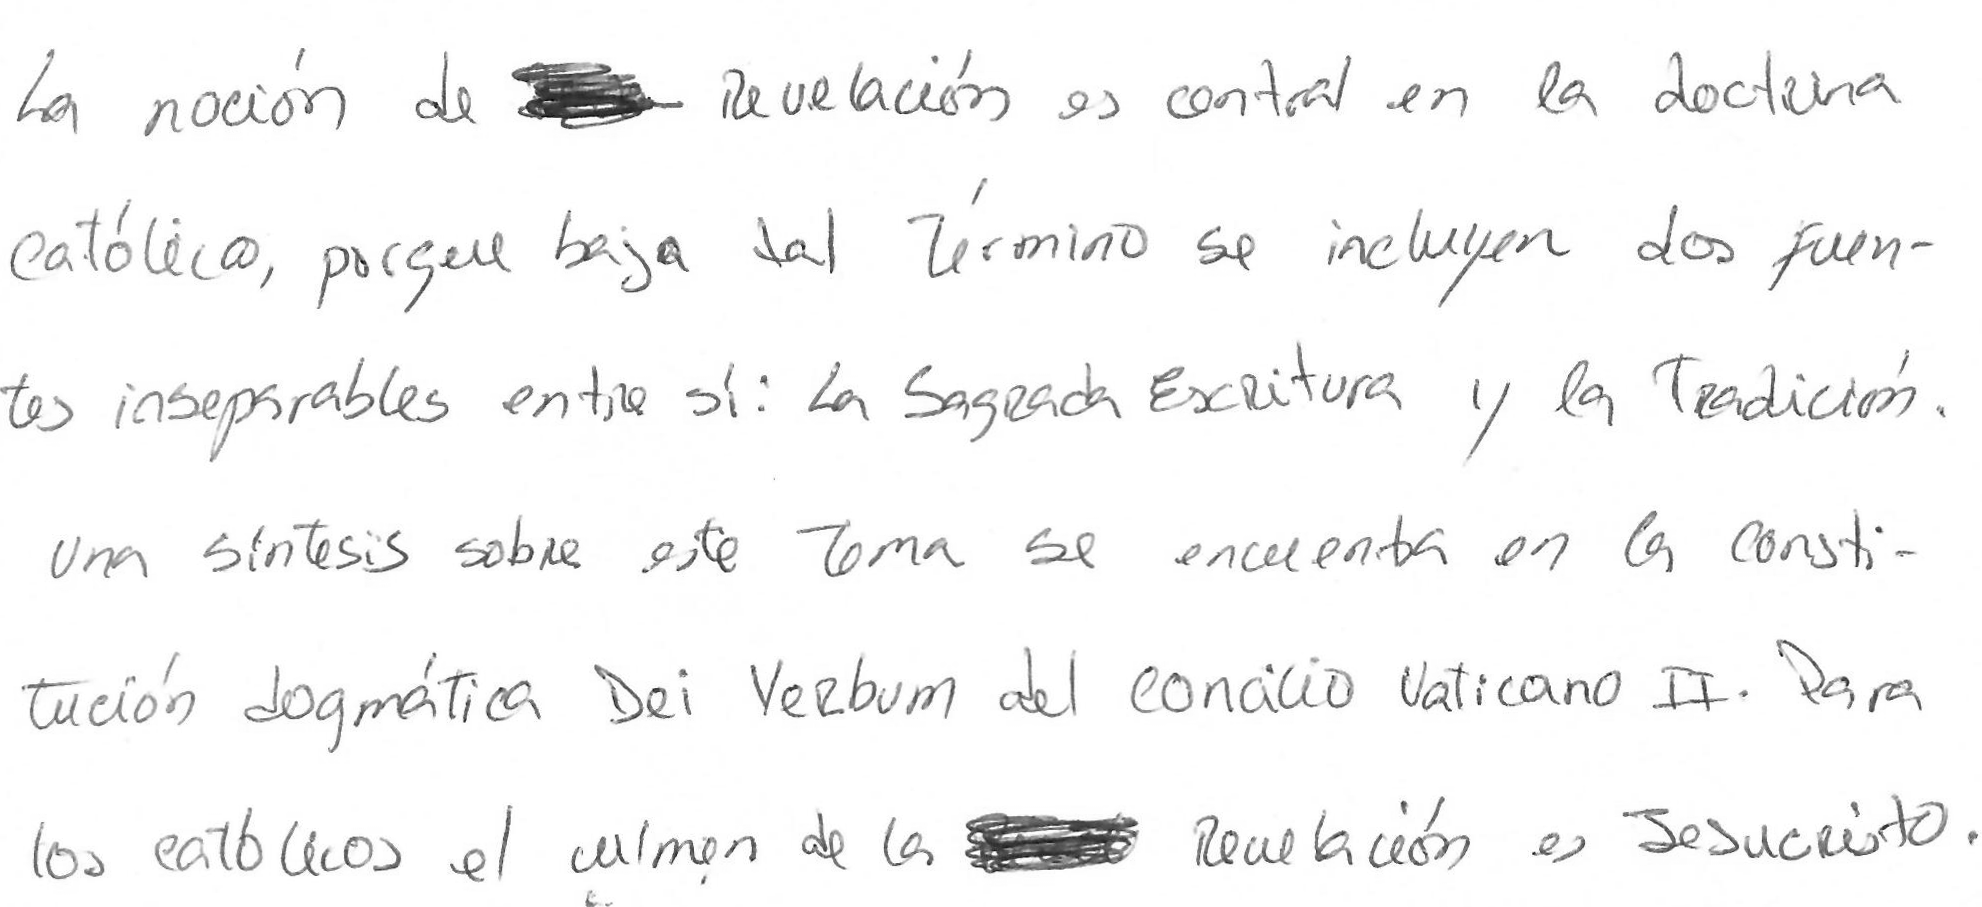 La noción de Revelación es central en la doctrina
católica, porque baja tal término se incluyen dos fuen-
tes inseparables entre sí: La Sagrada Escritura y la Tradición.
Una síntesis sobre este tema se encuentra en la consti-
tución dogmática Dei Verbum del concilio Vaticano II. Para
los católicos el culmen de la Revelación es Jesucristo.